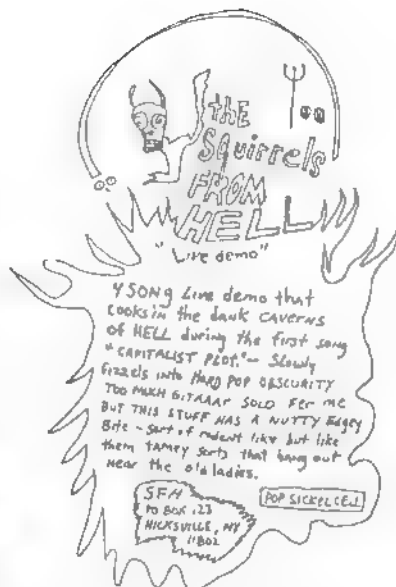 the
Squirrels
FROM
HELL
"Live demo"
4 SONG Live demo that
cooks in the dank CAVERNS
of HELL during the first song
"CAPITALIST PLOT." - Slowly
fizzels into HARD POP OBSCURITY
TOO MUCH GITAAAR SOLO Fer me
BUT THIS STUFF HAS A NUTTY Edgey
Bite - sort of rodent like but like
them tamey sorts that hang out
near the old ladies.
SFH
PO BOX 123
HICKSVILLE, NY
11802
POP SICKELCELL